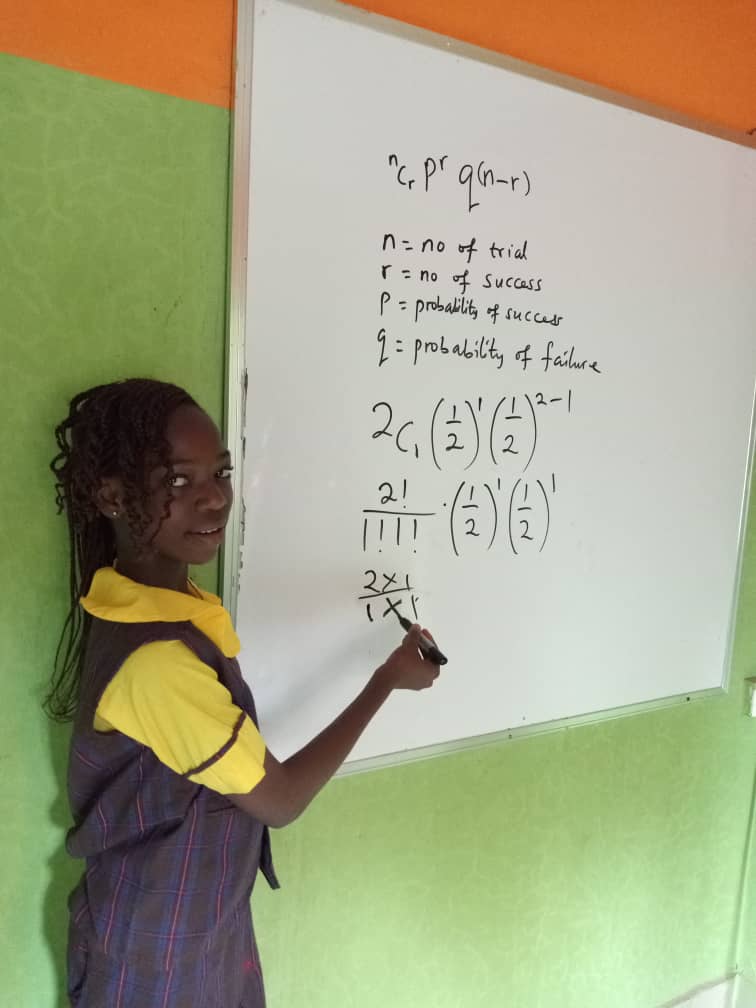 ⁿCᵣ pʳ q(n-r)
n = no of trial
r = no of success
p = probability of success
q = probability of failure
2C₁ (1/2)¹ (1/2)²⁻¹
2!/1!1! · (1/2)¹ (1/2)¹
2×1/1×1